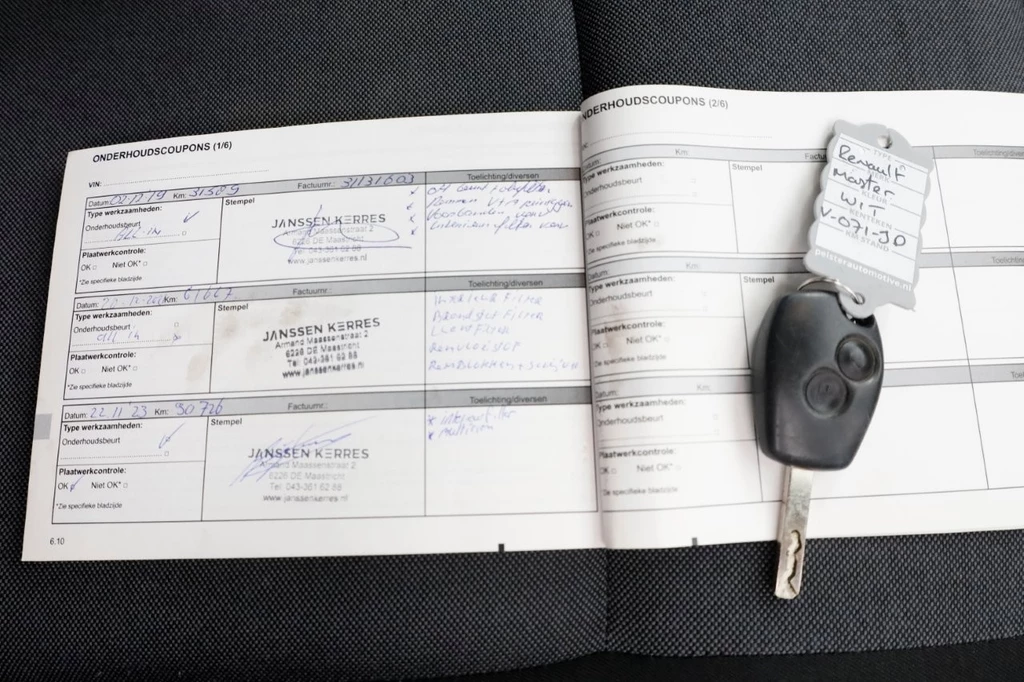 ONDERHOUDSCOUPONS (1/6)
VIN:
Datum: 02-11-19 Km: 31569 Factuurnr.: 31131603
Type werkzaamheden:
Onderhoudsbeurt
ALL-IN
Plaatwerkcontrole:
OK Niet OK*
*Zie specifieke bladzijde
Stempel
JANSSEN KERRES
Armand Maassenstraat 2
6228 DE Maastricht
Tel: 043-361 62 88
www.janssenkerres.nl
Toelichting/diversen
Interieurfilter
Datum: Km: 61667 Factuurnr.:
Type werkzaamheden:
Onderhoudsbeurt
all in
Plaatwerkcontrole:
OK Niet OK*
*Zie specifieke bladzijde
Stempel
JANSSEN KERRES
Armand Maassenstraat 2
6228 DE Maastricht
Tel: 043-361 62 88
www.janssenkerres.nl
Toelichting/diversen
Interieur Filter
Brandstof Filter
Lucht Filter
Remvloeistof
Datum: 22 11 '23 Km: 90726 Factuurnr.:
Type werkzaamheden:
Onderhoudsbeurt
Plaatwerkcontrole:
OK Niet OK*
*Zie specifieke bladzijde
Stempel
JANSSEN KERRES
Armand Maassenstraat 2
6228 DE Maastricht
Tel: 043-361 62 88
www.janssenkerres.nl
Toelichting/diversen
* interieurfilter
6.10
NDERHOUDSCOUPONS (2/6)
Datum: Km:
Type werkzaamheden:
Onderhoudsbeurt
Plaatwerkcontrole:
OK Niet OK*
*Zie specifieke bladzijde
Stempel
Datum: Km:
Type werkzaamheden:
Onderhoudsbeurt
Plaatwerkcontrole:
OK Niet OK*
*Zie specifieke bladzijde
Stempel
Datum: Km:
Type werkzaamheden:
Onderhoudsbeurt
Plaatwerkcontrole:
OK Niet OK*
*Zie specifieke bladzijde
Stempel
TYPE
Renault
Master
KLEUR
Wit
KENTEKEN
V-071-JD
KM STAND
pelsterautomotive.nl